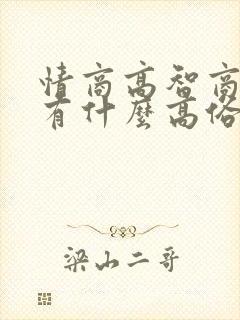 情商高智商
有什麼高俗
梁山二哥